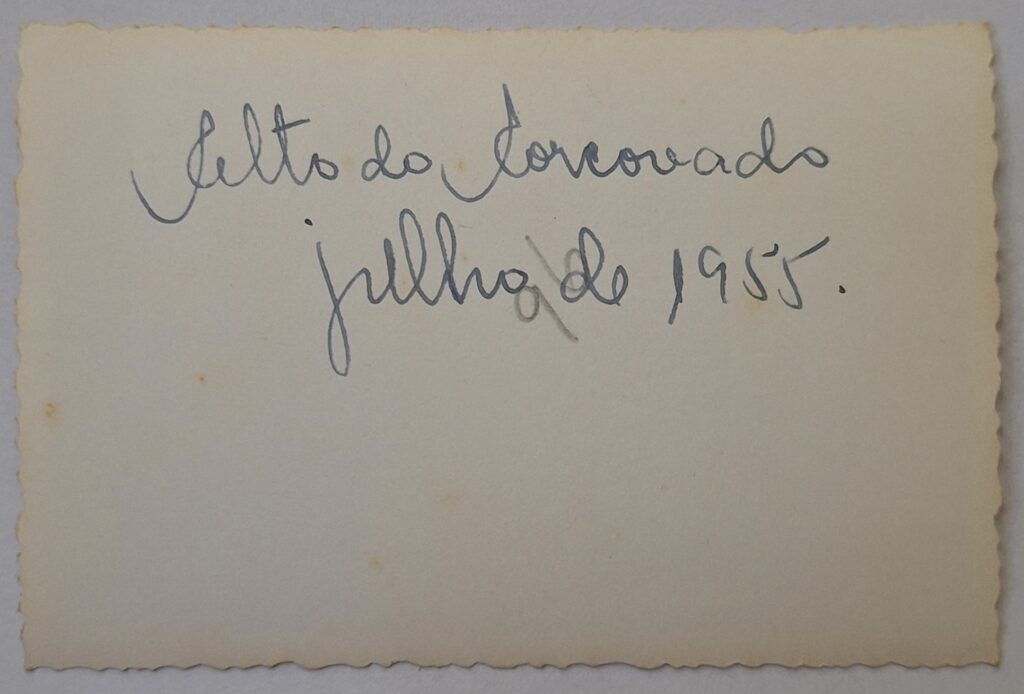 Alto do Corcovado
julho de 1955.